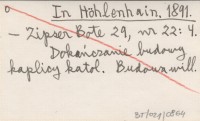 In Höhlenhain. 1891.
— Zipser Bote 29, nr 22: 4.
Dokańczanie budowy
kaplicy katol. Budowa will.